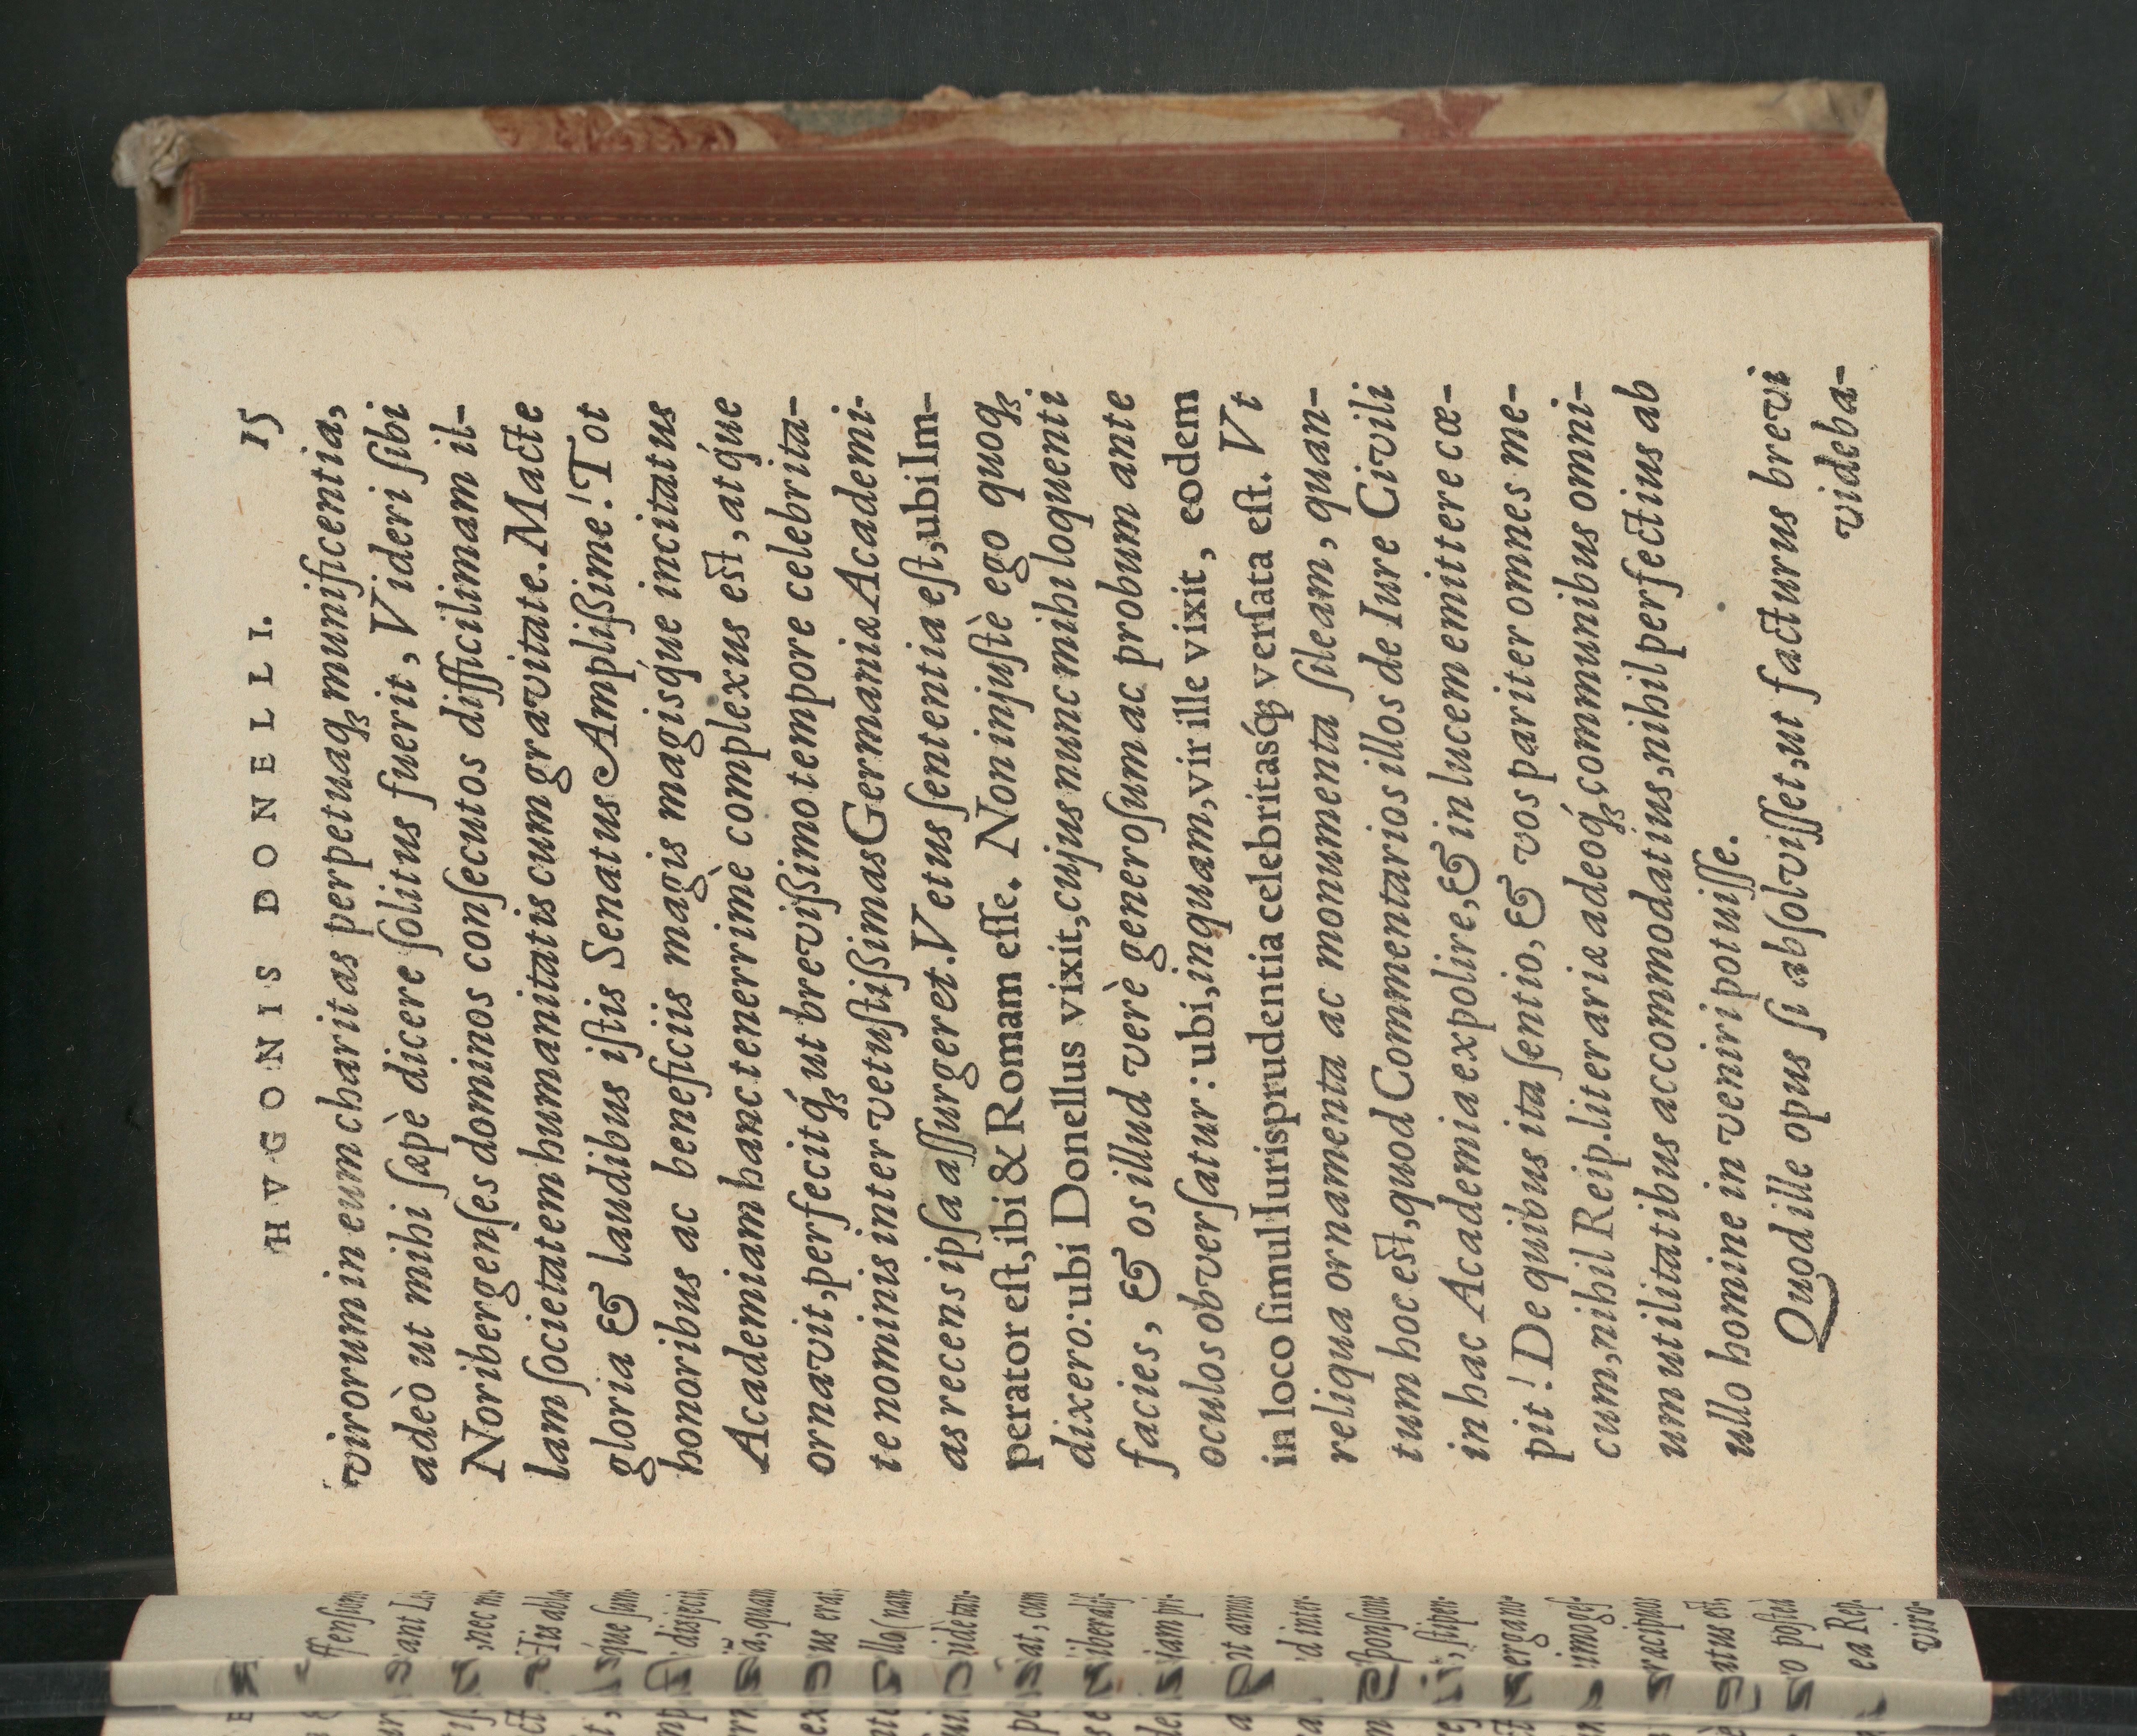 HVGONIS DONELLI. 15
virorum in eum charitas perpetuaq́ꝫ munificentia,
adeò ut mihi ſæpè dicere ſolitus fuerit, Videri ſibi
Noribergenſes dominos conſecutos difficilimam il-
lam ſocietatem humanitatis cum gravitate. Macte
gloria & laudibus iſtis Senatus Ampliſſime! Tot
honoribus ac beneficiis magis magisq́ue incitatus
Academiam hanc tenerrimè complexus est, atq́ue
ornavit, perfecitq́ꝫ ut breviſſimo tempore celebrita-
te nominis inter vetuſtiſſimas Germaniæ Academi-
as recens ipſa aſſurgeret. Vetus ſententia eſt, ubi Im-
perator eſt, ibi & Romam eſſe. Non injuſtè ego quoqꝫ
dixero: ubi Donellus vixit, cujus nunc mihi loquenti
facies, & os illud verè generoſum ac probum ante
oculos obverſatur: ubi, inquam, vir ille vixit, eodem
in loco ſimul Iurisprudentia celebritasq́ꝫ verſata eſt. Vt
reliqua ornamenta ac monumenta ſileam, quan-
tum hoc est, quod Commentarios illos de Iure Civili
in hac Academia expolire, & in lucem emittere cæ-
pit! De quibus ita ſentio, & vos pariter omnes me-
cum, nihil Reip. literariæ adeoq́ꝫ communibus omni-
um utilitatibus accommodatius, nihil perfectius ab
ullo homine in veniri potuiſſe.
Quod ille opus ſi abſolviſſet, ut facturus brevi
videba-
ffenſion
nec m
q́ue ſum-
disjecit
quam
us erat,
at, cum
iberaliſ-
iam pri-
nt annos
d inter-
ſponſione
ergano-
racipuos
atus eſt,
o poſteà
ea Rep.
viro-